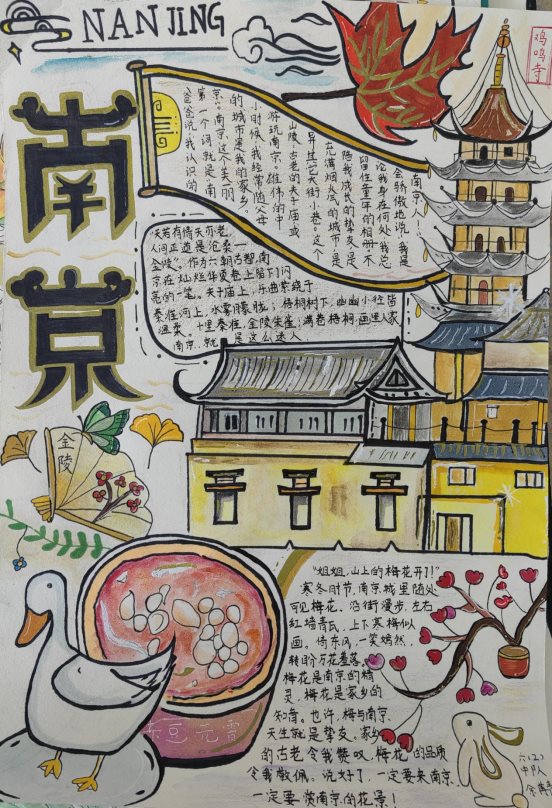 NANJING
鸡鸣寺
南京
爸爸说,我认识的
第一个词就是"南
京"。南京,这个美丽
的城市是我的家乡。
小时候,我经常随父母
游玩南京:雄伟的中
山陵、古老的夫子庙或
是其它大街小巷。这个
充满烟火气的城市,是
陪我成长的挚友,是
留住童年的相册。不
论我身在何处,我总
会骄傲地说:我是
南京人!
天若有情天亦老,
人间正道是沧桑——
金陵"。作为六朝古都,南
京在灿烂华夏卷上留下闪
亮的一笔。夫子庙上,乐曲萦绕于
秦淮河上,水雾朦胧;梧桐树下,幽幽小径皆
温柔。十里秦淮,金陵朱雀;满巷梧桐,画里人家
南京,就是这么迷人
金陵
赤豆元宵
"姐姐,山上的梅花开了!"
寒冬时节,南京城里随处
可见梅花。沿街漫步,左右
红墙青瓦,上下寒梅似
画。倚东风,一笑嫣然,
转盼万花羞落。
梅花是南京的精
灵,梅花是家乡的
知音。也许,梅与南京,
天生就是挚友,家乡
的古老令我赞叹,梅花的品质
令我敬佩。说好了,一定要来南京,
一定要赏南京的花景!
六(2)
中队